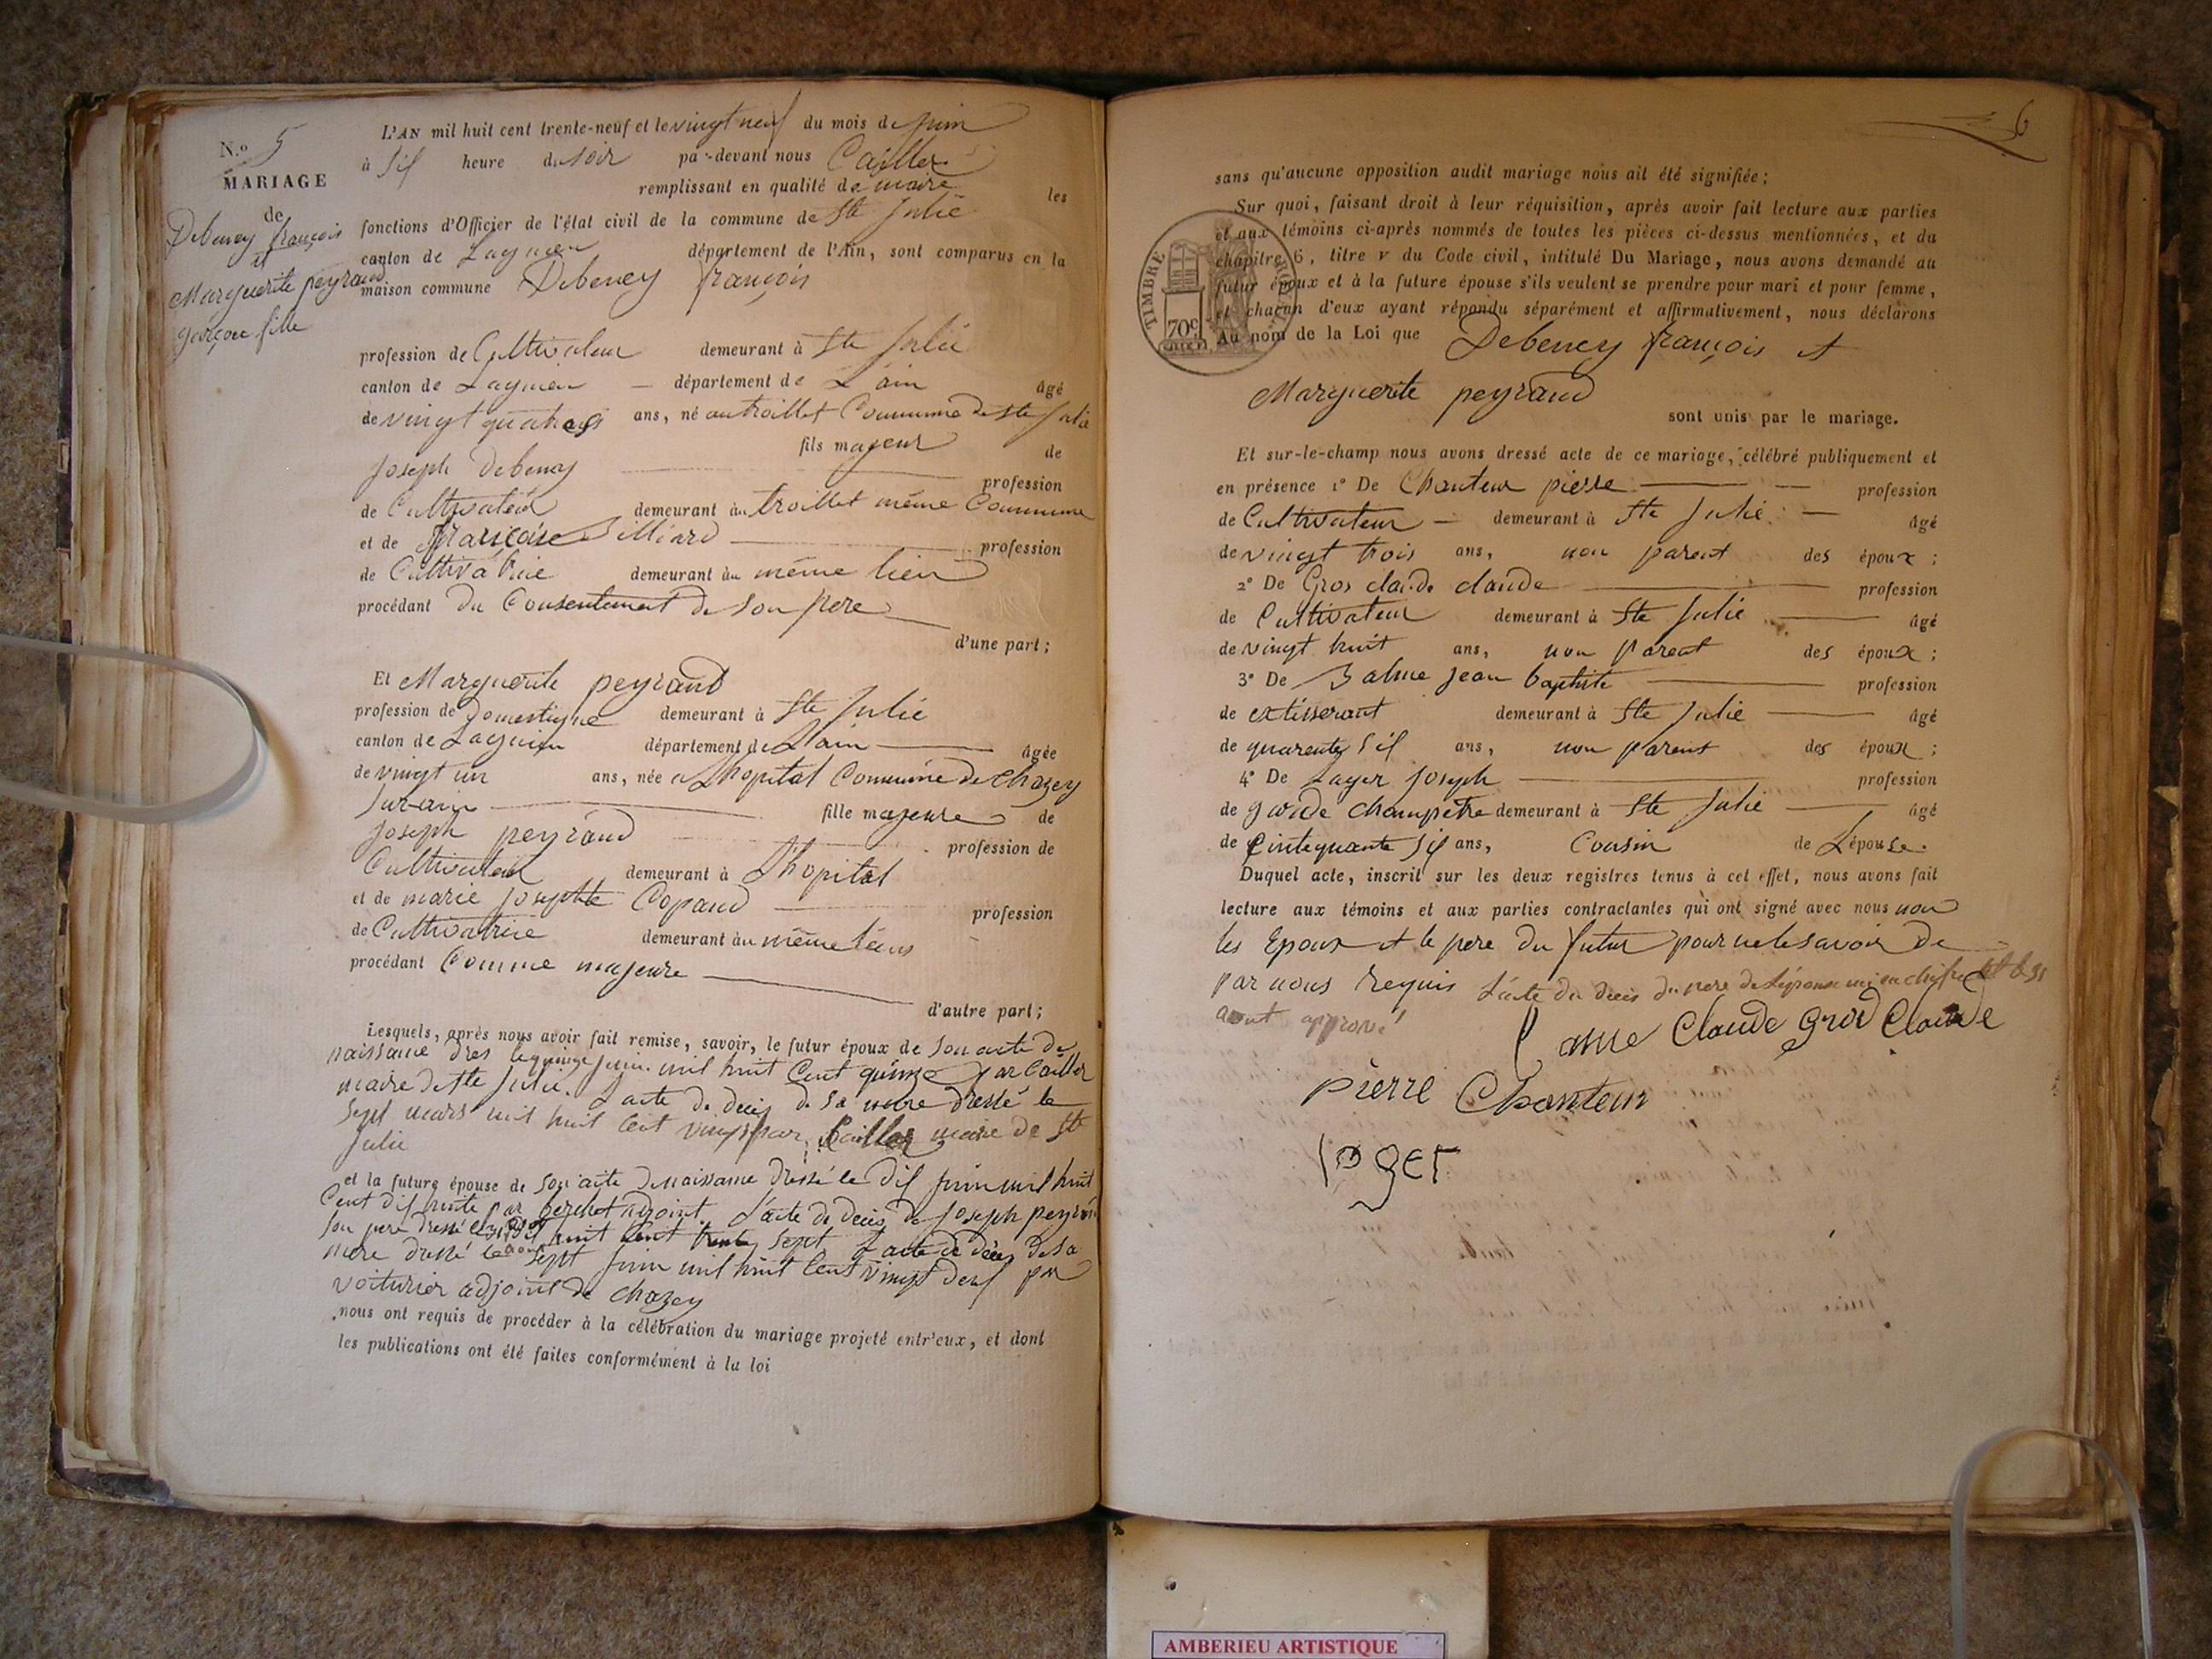 N.º 5
MARIAGE
de
Debeney françois
et
Marguerite peyraud
garçon fille
L'AN mil huit cent trente-neuf et le vingt neuf du mois de juin
à Sif heure du soir par-devant nous Cailler
remplissant en qualité de maire les
fonctions d'Officier de l'état civil de la commune de Ste Julie
canton de Lagnieu département de l'Ain, sont comparus en la
maison commune Debeney françois
profession de Cultivateur demeurant à Ste Julie
canton de Lagnieu — département de L'ain âgé
de vingt quatre ans, né au troillet Commune de Ste Julie
fils majeur de
Joseph Debeney profession
de Cultivateur demeurant au troillet même Commune
et de françoise Billiard profession
de Cultivatrice demeurant au même lieu
procédant du Consentement de son père
d'une part ;
Et Marguerite peyraud
profession de Domestique demeurant à Ste Julie
canton de Lagnieu département de L'ain âgée
de vingt un ans, née à L'hopital Commune de Chazey
sur-ain fille majeure de
Joseph peyraud profession de
Cultivateur demeurant à L'hopital
et de marie Josephte Copaud profession
de Cultivatrice demeurant au même lieus
procédant Comme majeure
d'autre part ;
Lesquels, après nous avoir fait remise, savoir, le futur époux de son acte de
naissance dres le quinze juin mil huit Cent quinze par Cailler
maire de Ste Julie. L'acte de décés de sa mere dressé le
sept mars mil huit Cent vingt par Cailler maire de Ste
Julie
et la future épouse de son acte de naissance dressé le dif juin mil huit
Cent dif huite par berchet adjoint. L'acte de décés de Joseph peyraud
son pere dressé le huit Cent trente sept L'acte de décés de sa
mere dressé le sept juin mil huit Cent vingt deuf par
voiturier adjoint de chazey
nous ont requis de procéder à la célébration du mariage projeté entr'eux, et dont
les publications ont été faites conformément à la loi
6
sans qu'aucune opposition audit mariage nous ait été signifiée ;
Sur quoi, faisant droit à leur réquisition, après avoir fait lecture aux parties
et aux témoins ci-après nommés de toutes les pièces ci-dessus mentionnées, et du
chapitre 6, titre v du Code civil, intitulé Du Mariage, nous avons demandé au
futur époux et à la future épouse s'ils veulent se prendre pour mari et pour femme,
et chacun d'eux ayant répondu séparément et affirmativement, nous déclarons
Au nom de la Loi que Debeney françois et
TIMBRE ROYAL
70c
Marguerite peyraud
sont unis par le mariage.
Et sur-le-champ nous avons dressé acte de ce mariage, célébré publiquement et
en présence 1º De Chanteur pierre profession
de Cultivateur — demeurant à Ste Julie — âgé
de vingt trois ans, non parent des époux ;
2º De Gros claude claude profession
de Cultivateur demeurant à Ste Julie âgé
de vingt huit ans, non parent des époux ;
3º De Balme Jean baptiste profession
de extisserant demeurant à Ste Julie âgé
de quarente sif ans, non parent des époux ;
4º De Lager Joseph profession
de garde champêtre demeurant à Ste Julie âgé
de Cintequante sif ans, Cousin de L'épouse.
Duquel acte, inscrit sur les deux registres tenus à cet effet, nous avons fait
lecture aux témoins et aux parties contractantes qui ont signé avec nous non
les Epoux et le pere du futur pour ne le savoir de
par nous requis L'acte du décis du pere de L'épouse mi en chifre
aout approuvé
Claude Grod Claude
pierre Chanteur
lager
AMBERIEU ARTISTIQUE